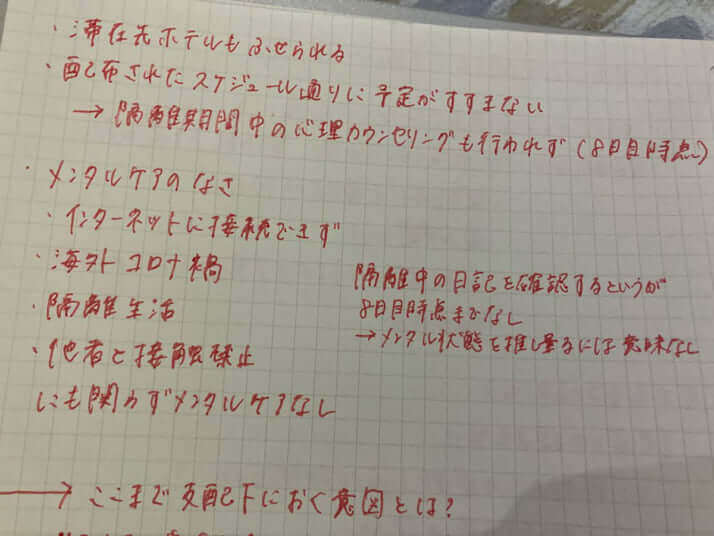 ・滞在先ホテルもふせられる
・配布されたスケジュール通りに予定がすすまない
→ 隔離期間中の心理カウンセリングも行われず(8日目時点)
・メンタルケアのなさ
・インターネットに接続できず
・海外コロナ禍
・隔離生活
・他者と接触禁止
にも関わずメンタルケアなし
隔離中の日記を確認するというが
8日目時点までなし
→メンタル状態を推し量るには意味なし
→ ここまで支配下におく意図とは?